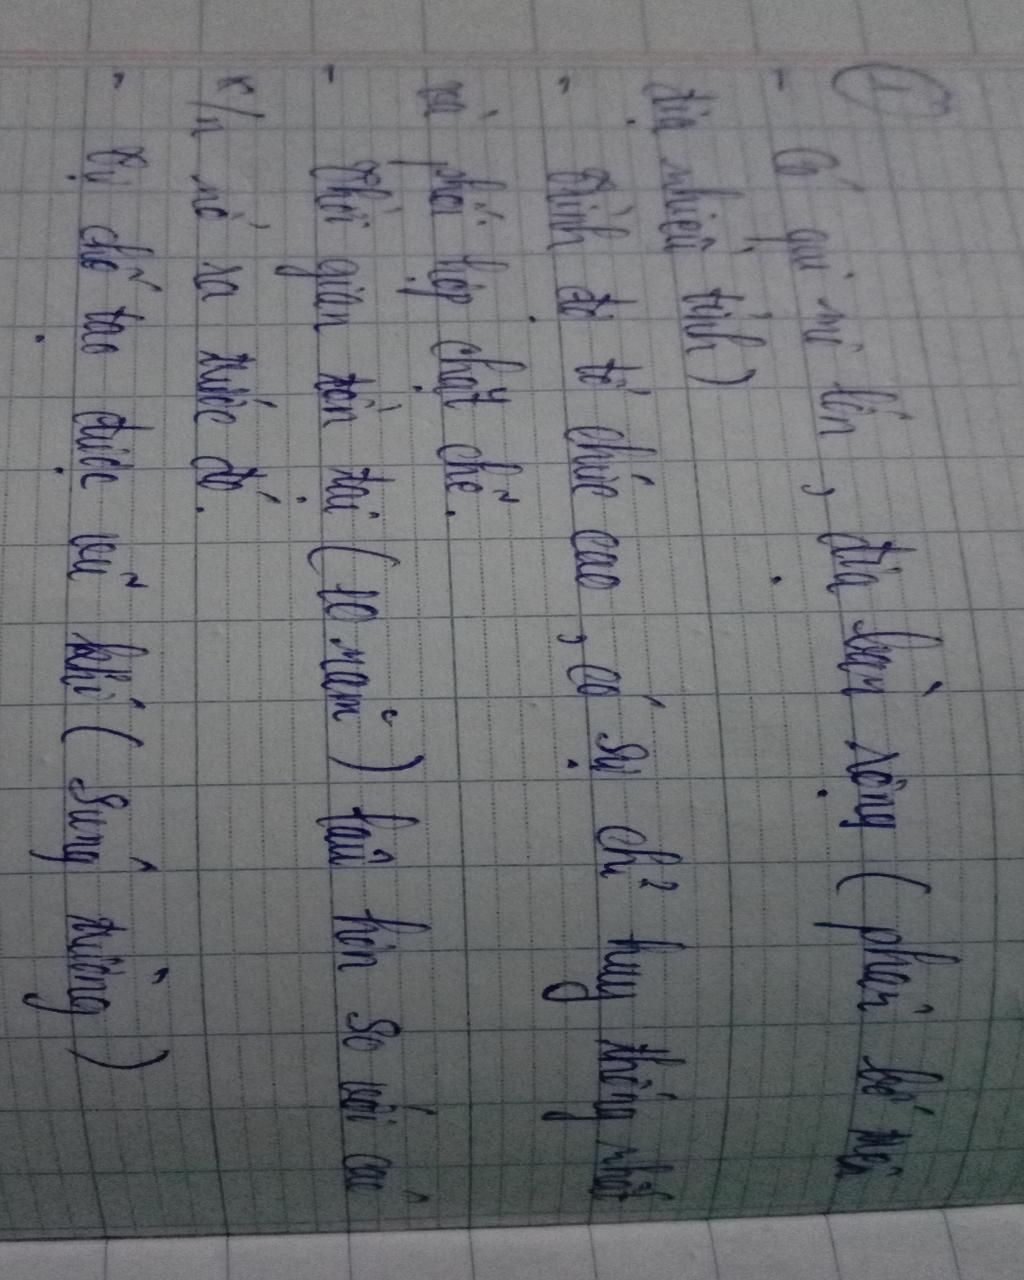 1
- Có qui mô lớn, địa bàn rộng (phân bố trên
địa nhiều tỉnh)
- Trình độ tổ chức cao, có sự chỉ huy thống nhất
và phối hợp chặt chẽ.
- Thời gian tồn tại (10 năm) lâu hơn so với các
k/n nổ ra trước đó.
- Tự chế tạo được vũ khí (súng trường)